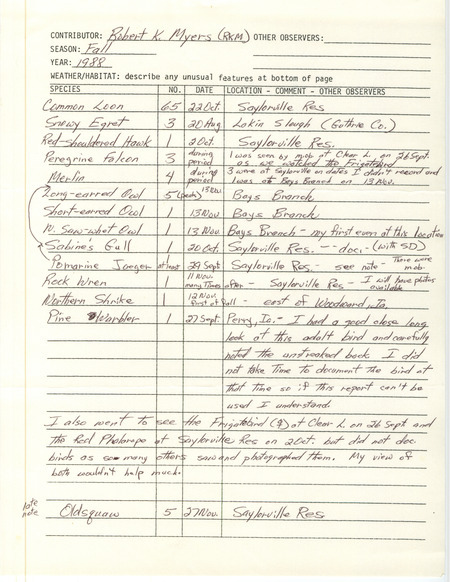 CONTRIBUTOR: Robert K. Myers (RKM) OTHER OBSERVERS:
SEASON: Fall
YEAR: 1988
WEATHER/HABITAT: describe any unusual features at bottom of page
SPECIES NO. DATE LOCATION - COMMENT - OTHER OBSERVERS
Common Loon 65 22 Oct. Saylorville Res
Snowy Egret 3 20 Aug Lakin Slough (Guthrie Co.)
Red-shouldered Hawk 1 2 Oct. Saylorville Res.
Peregrine Falcon 3 during period 1 was seen by mob at Clear L. on 26 Sept. as we watched the Frigatebird
Merlin 4 during period 3 were at Saylorville on dates I didn't record and 1 was at Bays Branch on 13 Nov.
Long-earred Owl 5 13 Nov Bays Branch
Short-earred Owl 1 13 Nov Bays Branch
N. Saw-whet Owl 1 13 Nov. Bays Branch - my first ever at this location
Sabine's Gull 1 20 Oct. Saylorville Res. -- doc. - (with SD)
Pomarine Jaeger at least 29 Sept Saylorville Res. - see note - There were mob
Rock Wren 1 11 Nov. many times after - Saylorville Res - I will have photos available
Northern Shrike 1 12 Nov. first of fall - east of Woodward, Ia.
Pine Warbler 1 27 Sept. Perry, Ia. - I had a good close long
look at this adult bird and carefully
noted the unstreaked back I did
not take time to document the bird at
that time so if this report can't be
used I understand.
I also went to see the Frigatebird (♀) at Clear L. on 26 Sept and
the Red Phalarope at Saylorville Res on 2 Oct. but did not doc.
birds as so many others saw and photographed them. My view of
both wouldn't help much.
late note Oldsquaw 5 27 Nov. Saylorville Res